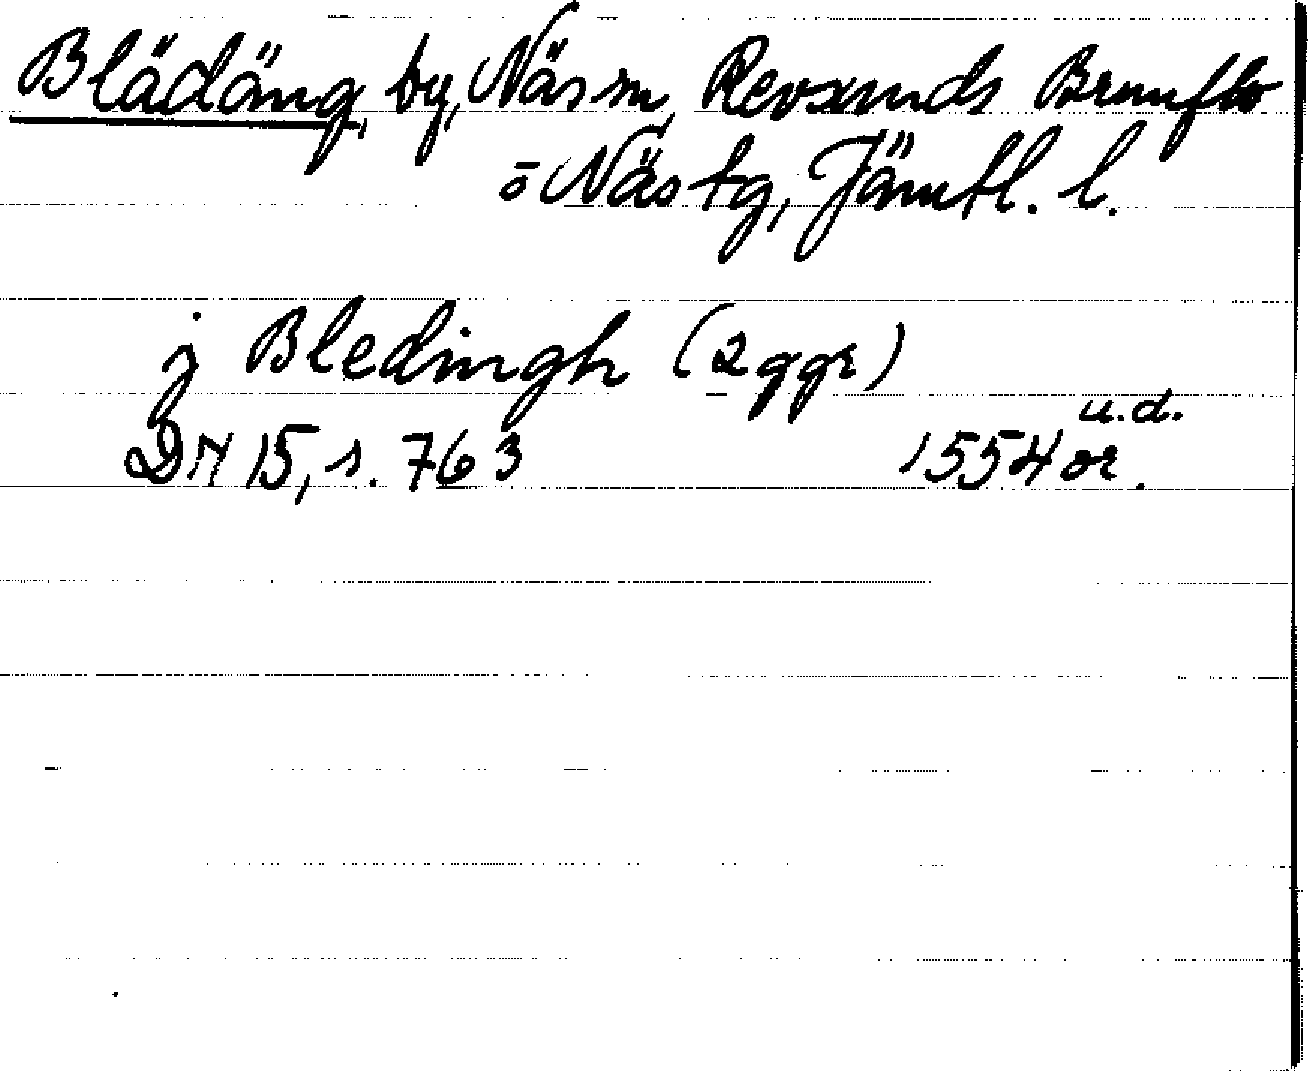 Blädäng, by, Näs sn, Revsunds Brunflo
o Näs tg, Jämtl. l.
j Bledingh (2 ggr)
u.d.
DN 15, s. 763 1554 or.